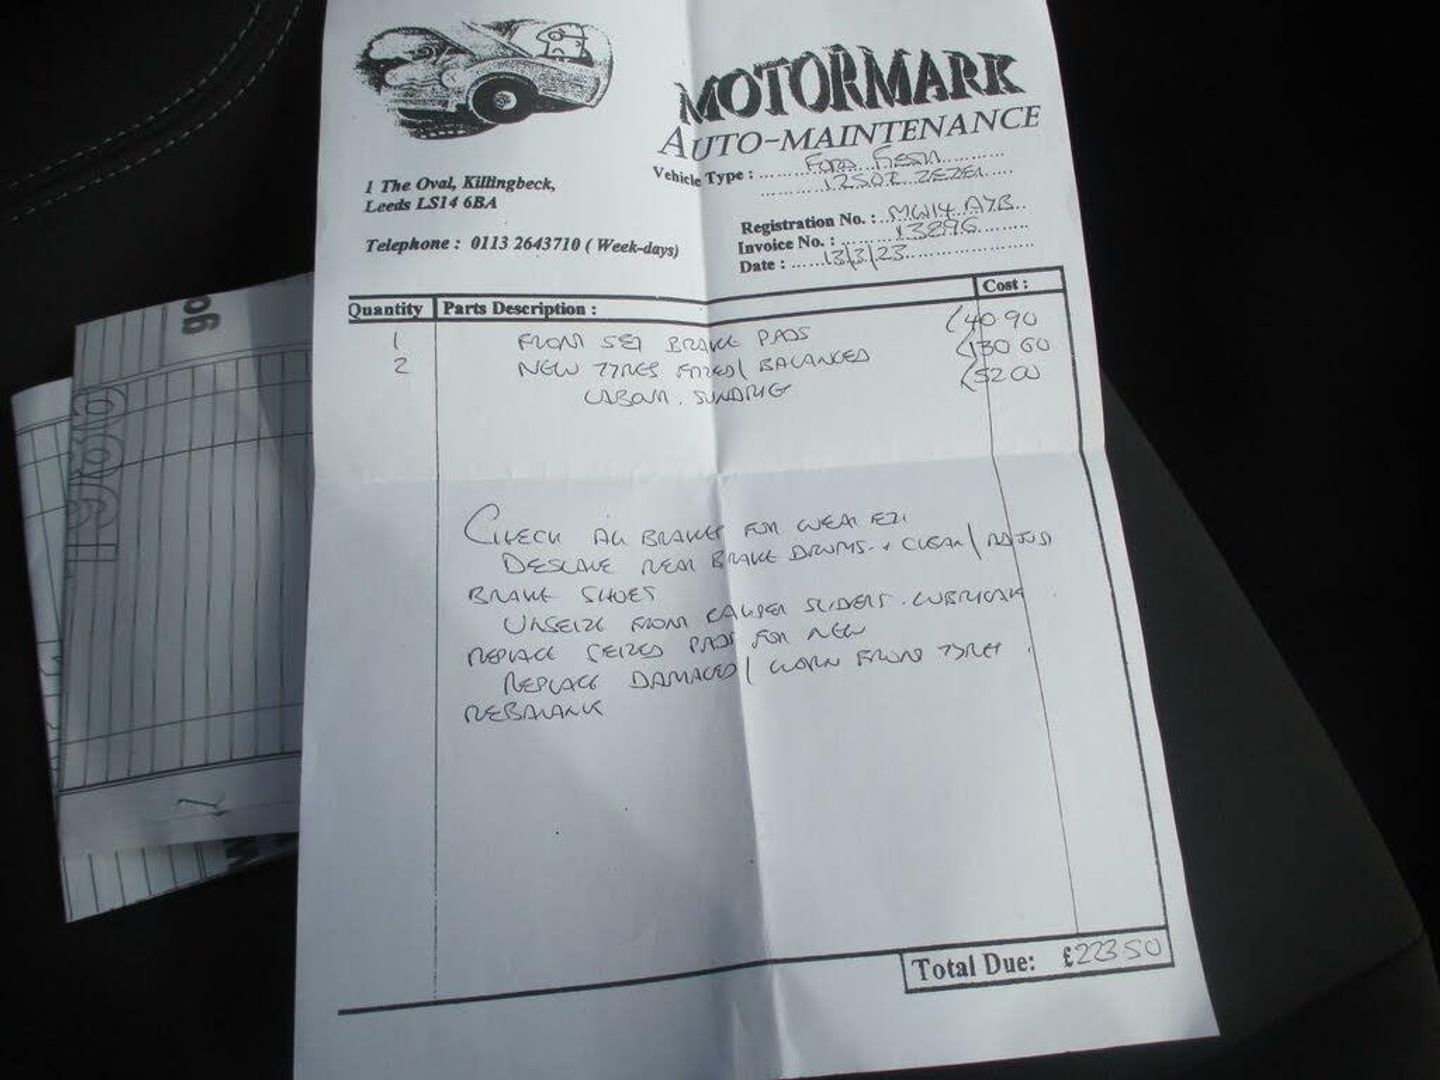 MOTORMARK
AUTO-MAINTENANCE
1 The Oval, Killingbeck,
Leeds LS14 6BA
Telephone : 0113 2643710 ( Week-days)
Vehicle Type : FORD FIESTA
1250I ZETEC
Registration No. : MW14 AYB
Invoice No. : 13296
Date : 13/3/23
Quantity Parts Description : Cost :
1 FRONT SET BRAKE PADS £40 90
2 NEW TYRES FITTED / BALANCED £130 60
LABOUR . SUNDRIE £52 00
CHECK ALL BRAKES FOR WEAR ETC
DESCALE REAR BRAKE DRUMS + CLEAN / ADJUST
BRAKE SHOES
UNSEIZE FRONT CALIPER SLIDERS . LUBRICATE
REPLACE SEIZED PADS FOR NEW
REPLACE DAMAGED / WORN FRONT TYRES .
REBALANCE
Total Due: £223 50